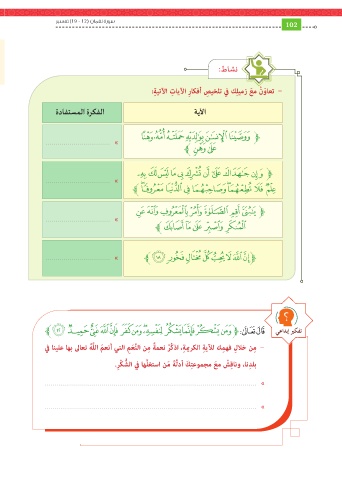 سورة لقمان (12 - 19) تفسير
102
نشاط:
- تعاون مع زميلك في تلخيص أفكار الآيات الآتية:
الآية
الفكرة المستفادة
﴿ وَوَصَّيْنَا ٱلْإِنسَٰنَ بِوَٰلِدَيْهِ حَمَلَتْهُ أُمُّهُۥ وَهْنًا
عَلَىٰ وَهْنٍ ﴾
﴿ وَإِن جَٰهَدَاكَ عَلَىٰٓ أَن تُشْرِكَ بِى مَا لَيْسَ لَكَ بِهِۦ
عِلْمٌ فَلَا تُطِعْهُمَا وَصَاحِبْهُمَا فِى ٱلدُّنْيَا مَعْرُوفًا ﴾
﴿ يَٰبُنَىَّ أَقِمِ ٱلصَّلَوٰةَ وَأْمُرْ بِٱلْمَعْرُوفِ وَٱنْهَ عَنِ
ٱلْمُنكَرِ وَٱصْبِرْ عَلَىٰ مَآ أَصَابَكَ ﴾
﴿ إِنَّ ٱللَّهَ لَا يُحِبُّ كُلَّ مُخْتَالٍ فَخُورٍ ١٨ ﴾
تفكير إبداعي
قال تعالى: ﴿ وَمَن يَشْكُرْ فَإِنَّمَا يَشْكُرُ لِنَفْسِهِۦ وَمَن كَفَرَ فَإِنَّ ٱللَّهَ غَنِىٌّ حَمِيدٌ ١٢ ﴾
- من خلال فهمك للآية الكريمة، اذكر نعمة من النعم التي أنعم الله تعالى بها علينا في
بلدنا، وناقش مع مجموعتك أدلة من استغلها في الشكر.